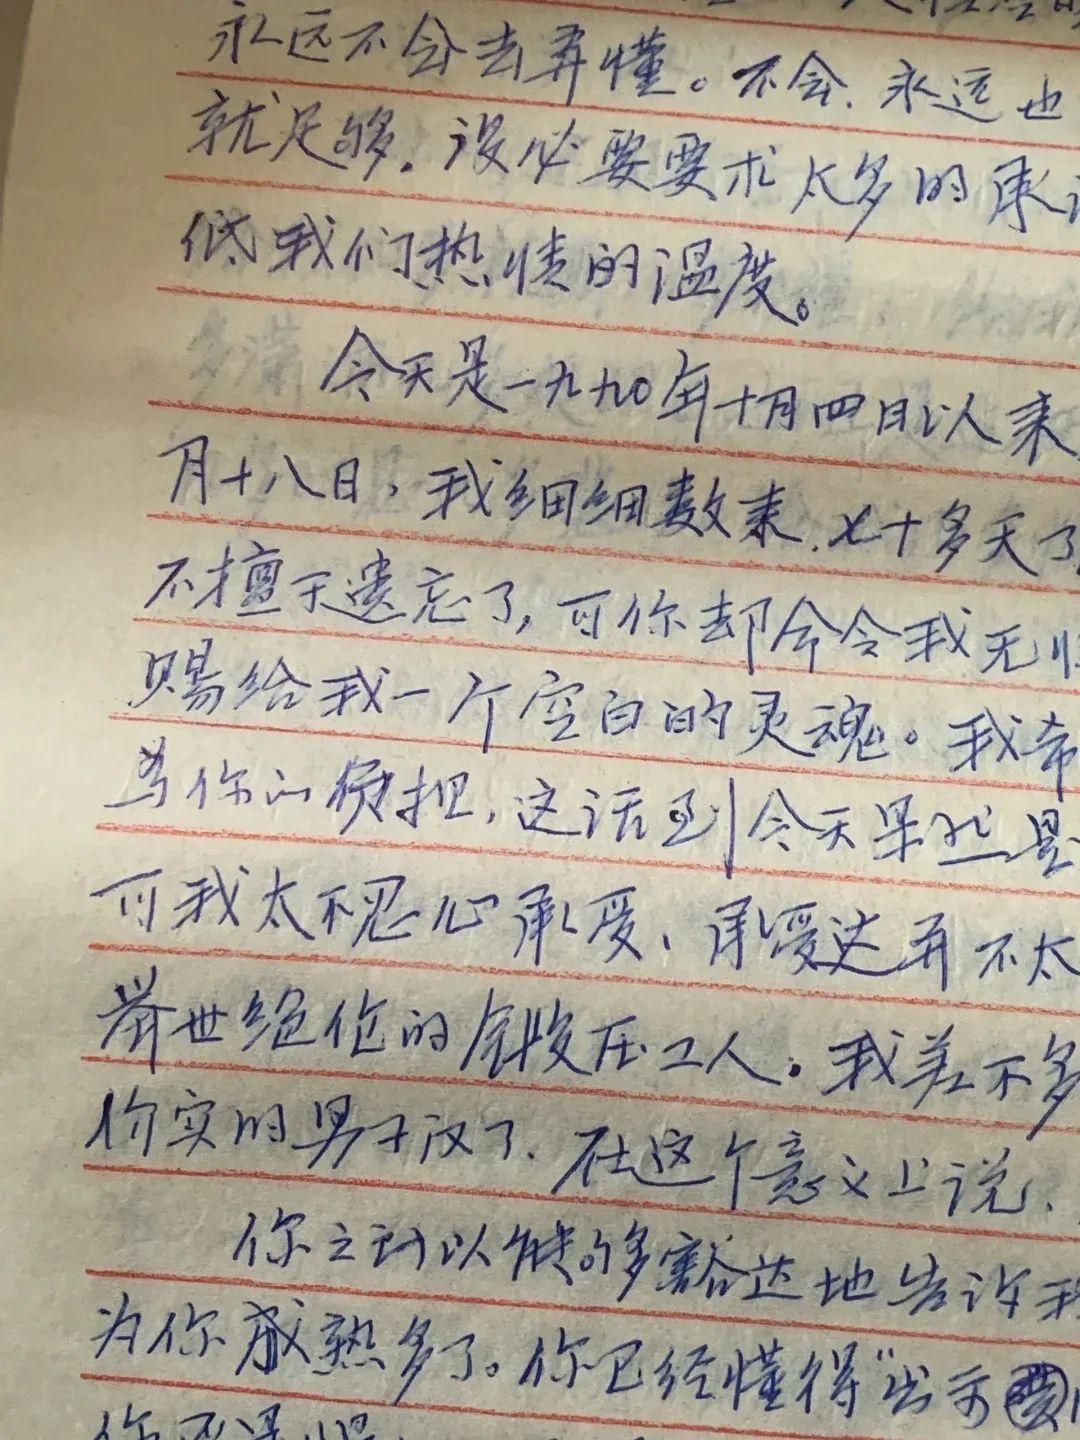 永远不会去弄懂。不会.永远也
就足够.没必要要求太多的承
低我们热情的温度。
今天是一九九〇年十月四日以来
月十八日,我细细数来.七十多天了
不擅于遗忘了,可你却令我无
赐给我一个空白的灵魂。我希
为你的负担,这话到今天果然是
可我太不忍心承受、承受这并不太
举世绝伦的压工人。我差不多
你实的男子汉了.在这个意义上说、
你之所以能够豁达地告诉我
为你成熟多了。你已经懂得“出示